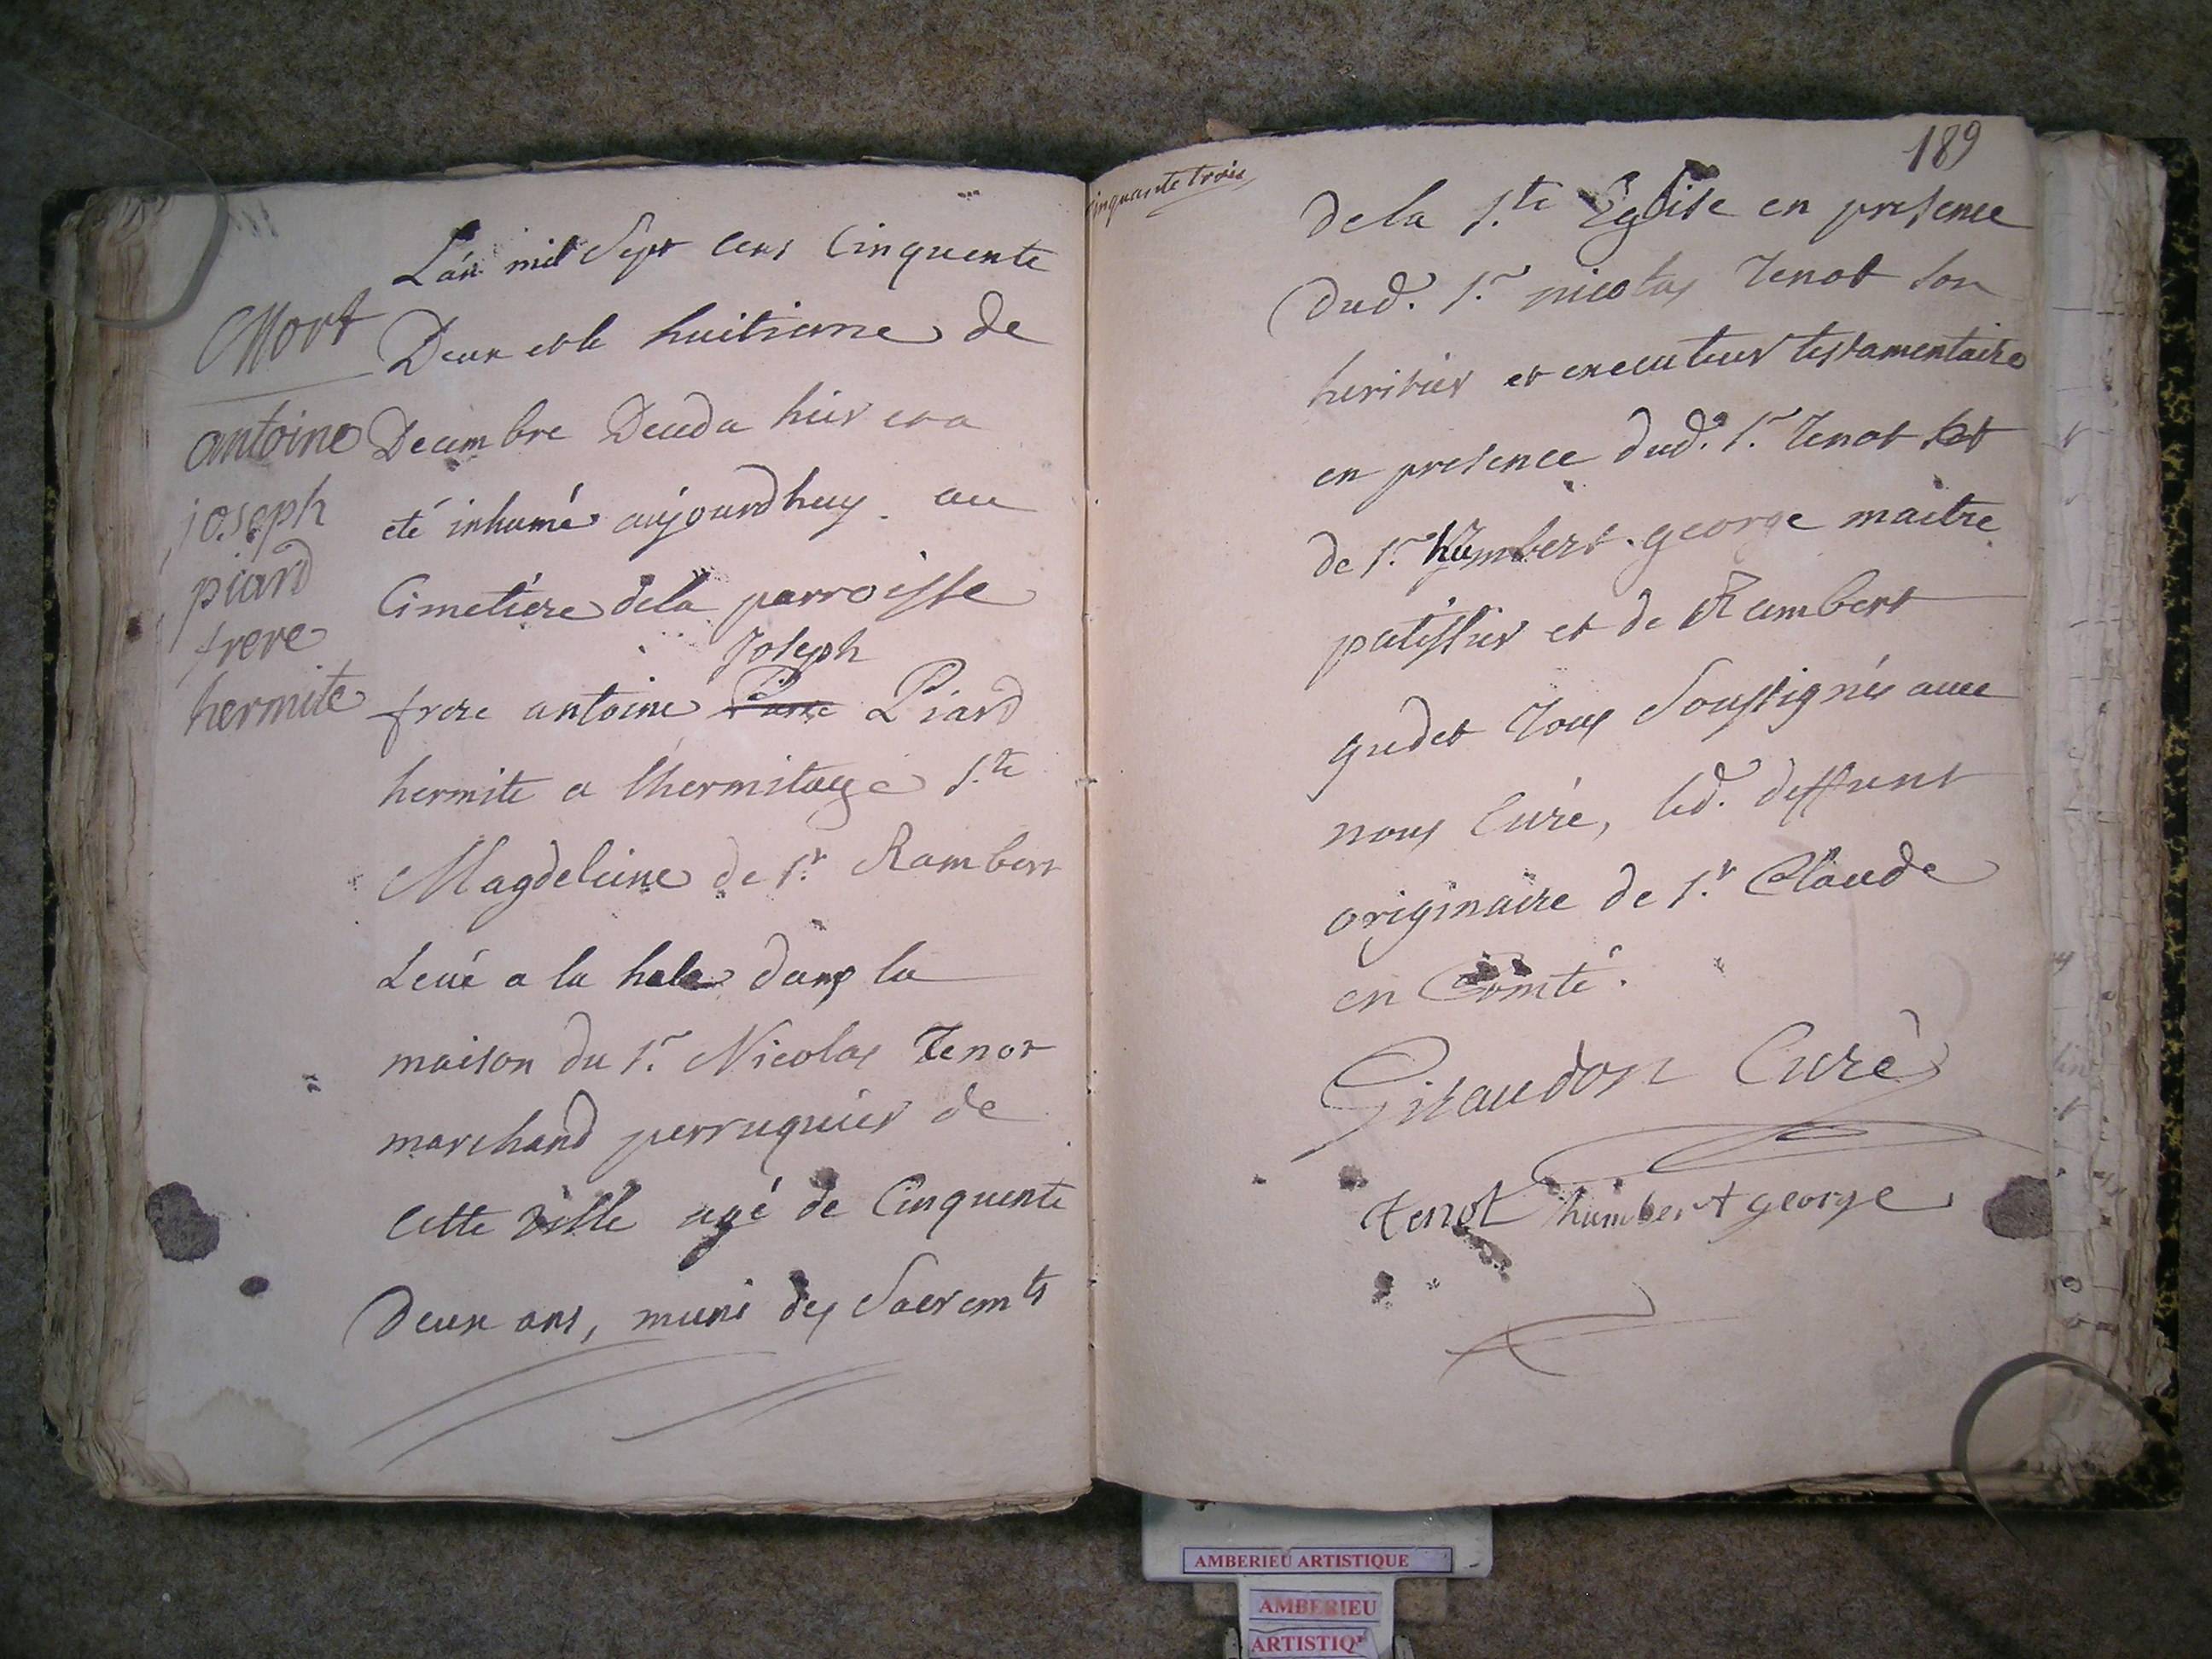 Mort
antoine
joseph
piard
frere
hermite
L'an mil Sept Cens Cinquente
Deux et le huitieme de
Decembre Decedа hier et a
eté inhumé aujourdhuy au
Cimetiere de la parroisse
Joseph
frere antoine Piard
hermite a l'hermitage S.te
Magdeleine de S.t Rambert
Levé a la hale dans la
maison du S.r Nicolas Tenot
marchand perruquier de
Cette ville agé de Cinquente
Deux ans, muni des Sacrem.ts
cinquante trois
189
de la S.te Eglise en presence
dud. S.r nicolas Tenot son
heritier et executeur testamentaire
en presence dud. S.r Tenot et
de S.r humbert george maitre
patissier et de Rambert
gudet Tous Soussignés avec
nous Curé, led. deffunt
originaire de S.t Claude
en Comté.
Giraudon Curé
tenot humbert george
AMBERIEU ARTISTIQUE
AMBERIEU
ARTISTIQ